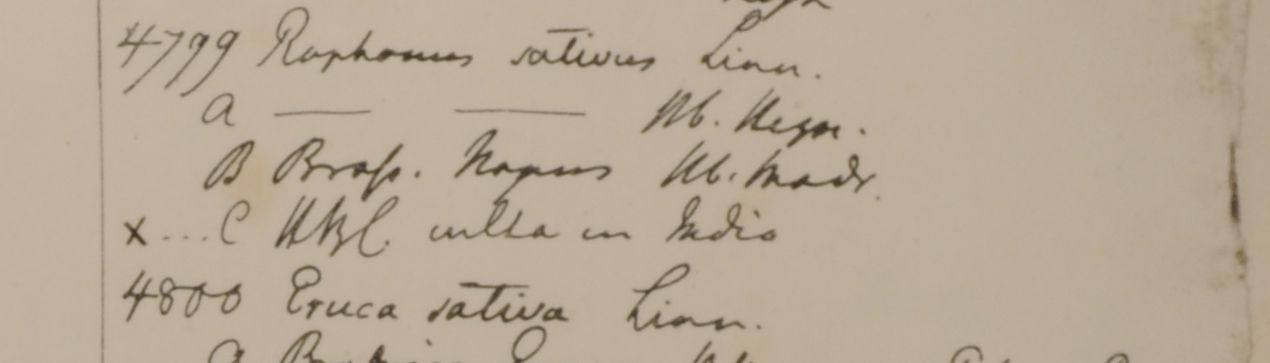 4799 Raphanus sativus Linn.
a — — Hb. Heyn.
B Brass. Napus Hb. Madr.
x...C HBC. culta in India
4800 Eruca sativa Linn.